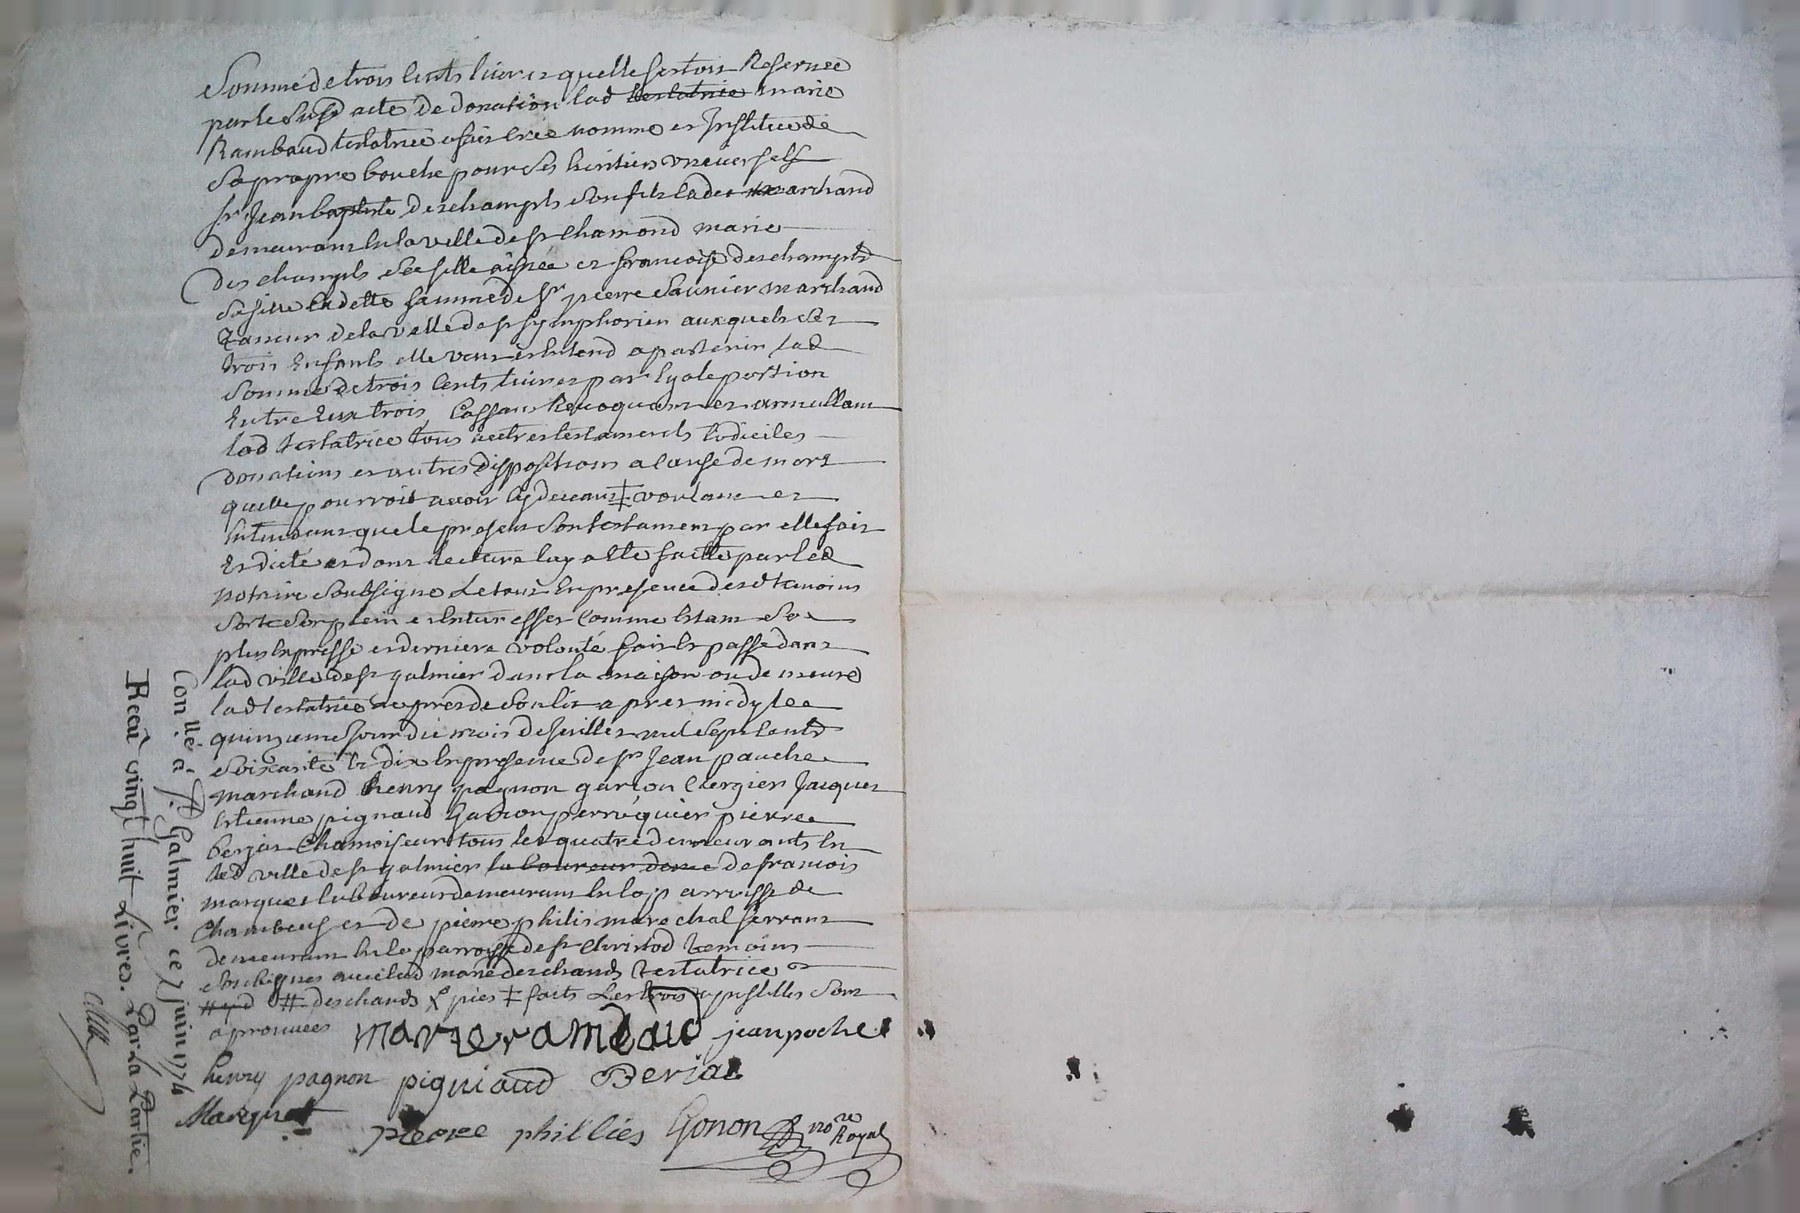 Somme de trois Cents livres quelle sestoit Reservée
par le susd acte de donation lad testatrice marie
Rambaud testatrice a fait crée nommé et Institué de
Sa propre bouche pour Ses heritiers universels
sr Jean baptiste deschamps son fils cadet marchand
demeurant en la ville de st Chamond marie
des champs sa fille aisnée et francoise deschamps
sa fille cadette famme de sr pierre Saunier marchand
Taneur de la ville de st symphorien auxquels ses
trois Enfants elle veut et Entend apartenir lad
Somme de trois Cents livres par Egale portion
Entre Eux trois, Cassant Revoquant et annullant
lad testatrice tous autres testaments Codiciles
donations et autres dispositions a cause de mort
quelle pourroit avoir Cy devant ‡ voulant et
Entendant que le present Son testament par elle fait
Et dicté et dont lecture luy a été faitte par led
notaire Soubsigné Le tout En presence desd temoins
Sorte Son plein et Entier effet Comme Etant Sa
plus Expresse et derniere volonté fait Et passé dans
lad ville de st galmier dans la maison ou demeure
lad testatrice apres midy le
quinzieme Jour du mois de Juillet mil Sept Cents
Soixante Et dix En presence de sr Jean pauche
marchand henry pagnon garcon Clergier Jacques
Estienne pignaud Garcon perruquier pierre
berjat Chamoiseur tous les quatre demeurants En
lad ville de st galmier laboureur deme de francois
marquet laboureur demeurant En la parroisse de
Chambeuf et de pierre philis marechal ferrant
demeurant En la parroisse de st Christod temoins
Soubsignes avec lad marie deschands testatrice
# deschands ‡ faits Les trois apostilles Sont
aprouvées marie rambaud jean poche
henry pagnon pigniaud Berjat
Marquet pierre phillies Gonon nore Royal
Conllé a St. Galmier ce 7 juin 1774
Recu vingt huit Livres. Par La Partie.